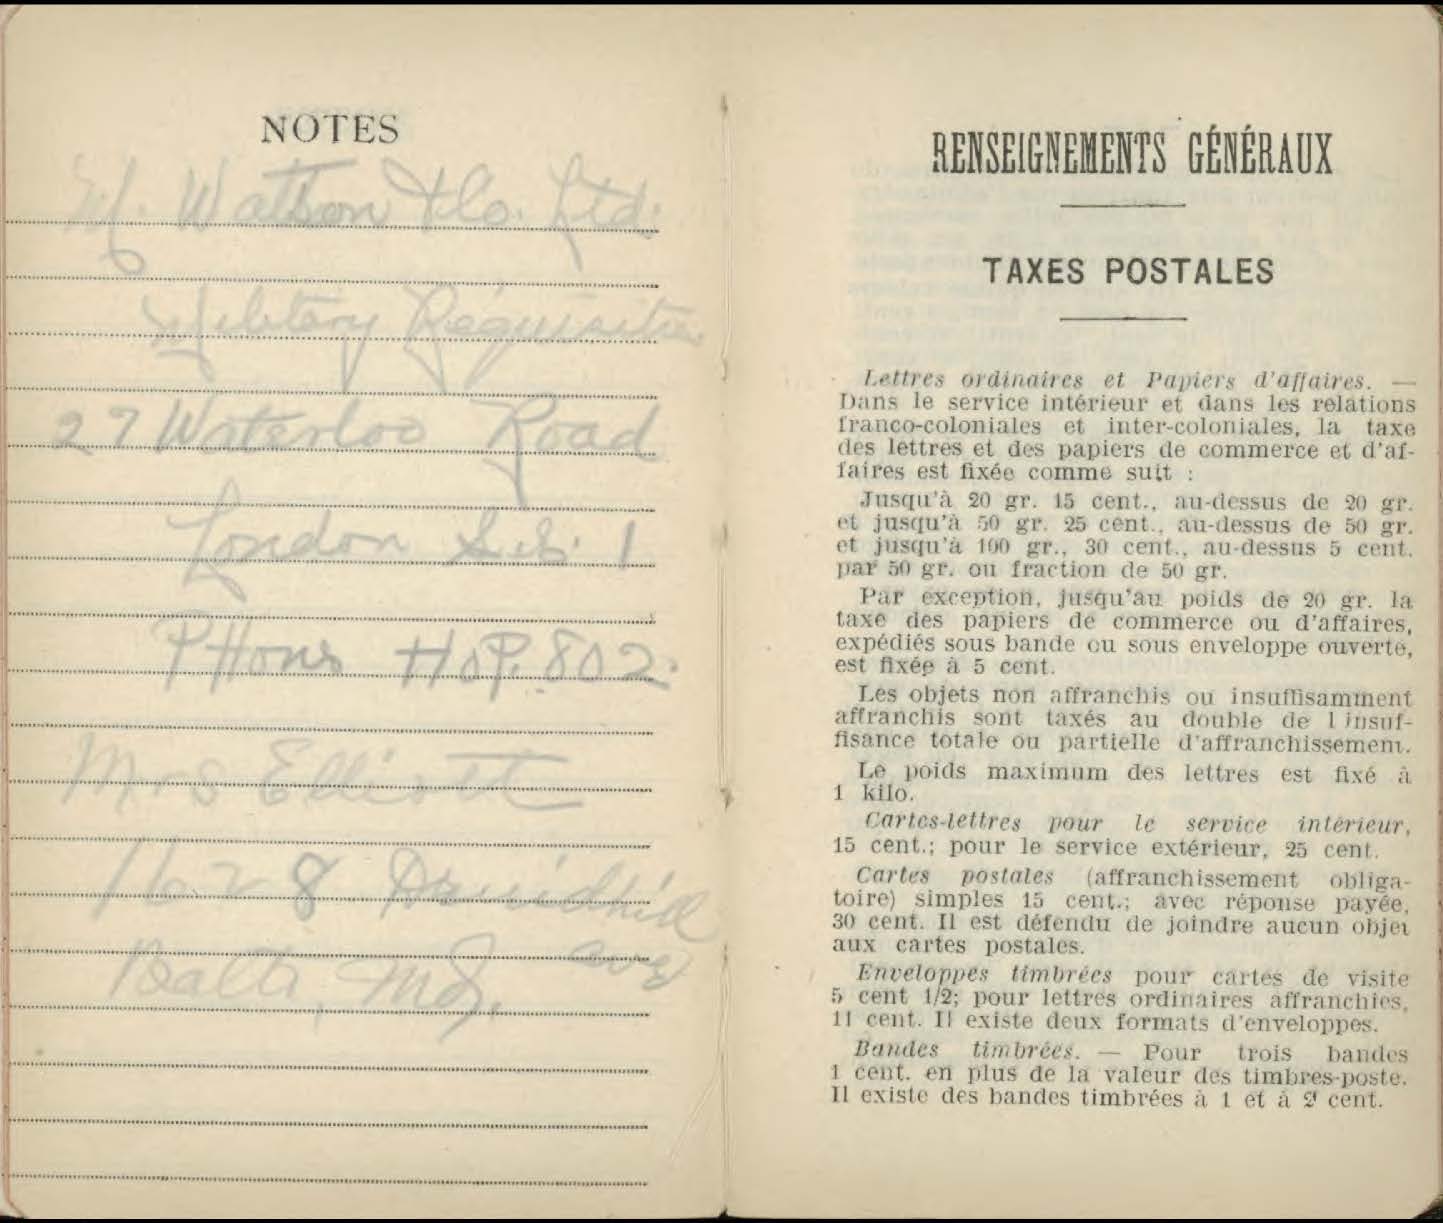 NOTES
Watson & Co. Ltd.
Military Requisites
27 Waterloo Road
London S.E. 1
PHone HoP. 802.
Mrs Elliott
1628 Druidhill
ave
Balto, Md.
RENSEIGNEMENTS GÉNÉRAUX
TAXES POSTALES
Lettres ordinaires et Papiers d'affaires. —
Dans le service intérieur et dans les relations
franco-coloniales et inter-coloniales, la taxe
des lettres et des papiers de commerce et d'af-
faires est fixée comme suit :
Jusqu'à 20 gr. 15 cent., au-dessus de 20 gr.
et jusqu'à 50 gr. 25 cent., au-dessus de 50 gr.
et jusqu'à 100 gr., 30 cent., au-dessus 5 cent.
par 50 gr. ou fraction de 50 gr.
Par exception, jusqu'au poids de 20 gr. la
taxe des papiers de commerce ou d'affaires,
expédiés sous bande ou sous enveloppe ouverte,
est fixée à 5 cent.
Les objets non affranchis ou insuffisamment
affranchis sont taxés au double de l'insuf-
fisance totale ou partielle d'affranchissement.
Le poids maximum des lettres est fixé à
1 kilo.
Cartes-lettres pour le service intérieur,
15 cent.; pour le service extérieur, 25 cent.
Cartes postales (affranchissement obliga-
toire) simples 15 cent.; avec réponse payée,
30 cent. Il est défendu de joindre aucun objet
aux cartes postales.
Enveloppes timbrées pour cartes de visite
5 cent 1/2; pour lettres ordinaires affranchies,
11 cent. Il existe deux formats d'enveloppes.
Bandes timbrées. — Pour trois bandes
1 cent. en plus de la valeur des timbres-poste.
Il existe des bandes timbrées à 1 et à 2 cent.